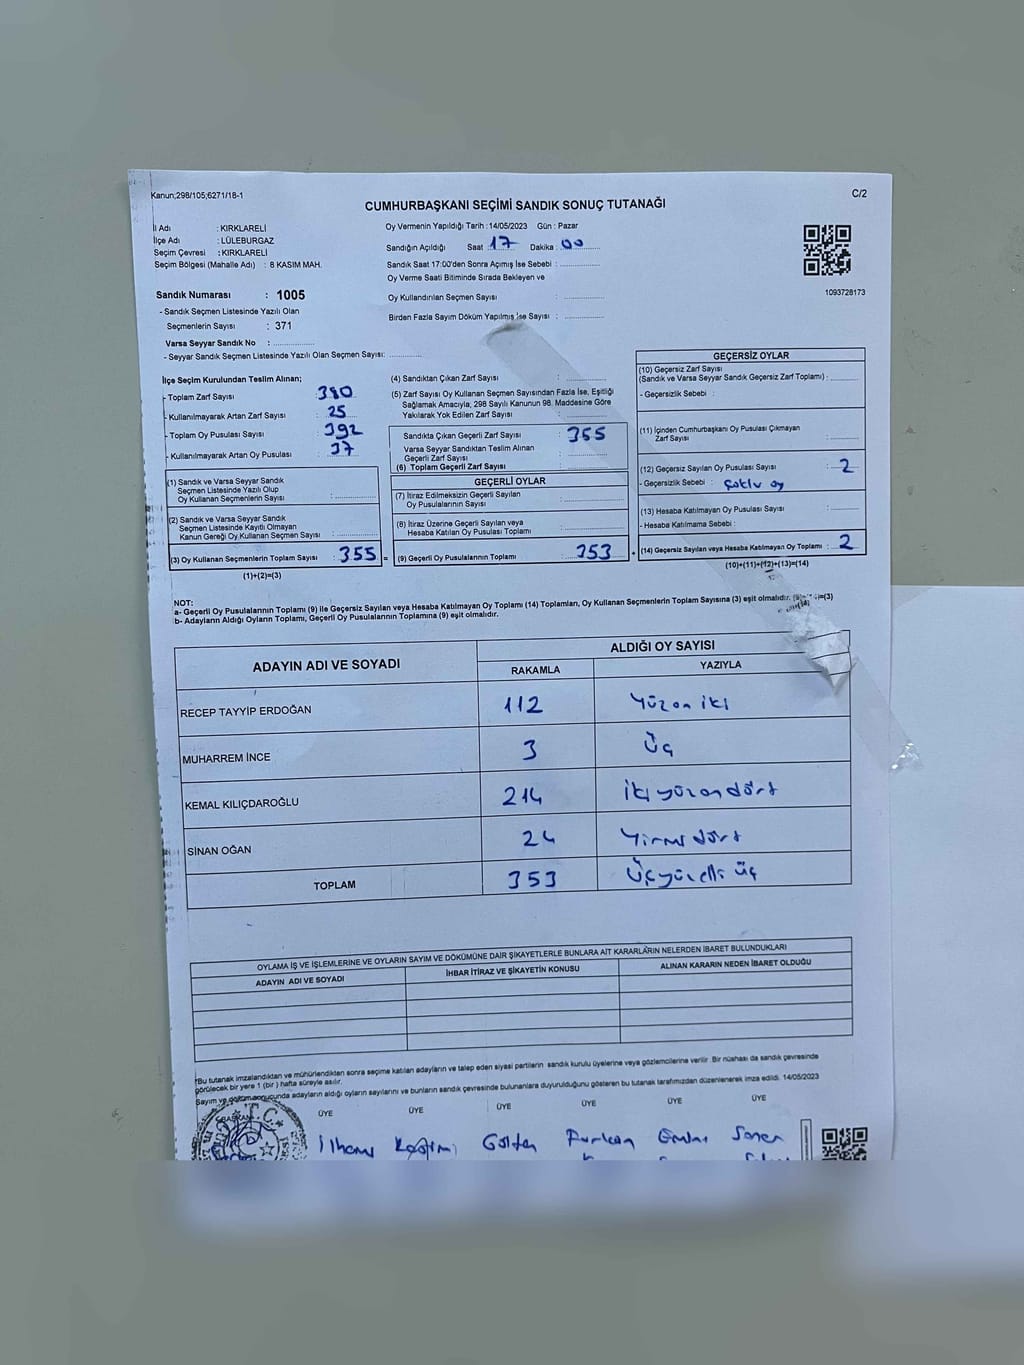 Kanun;298/105;6271/18-1
C/2
CUMHURBAŞKANI SEÇİMİ SANDIK SONUÇ TUTANAĞI
İl Adı : KIRKLARELİ
İlçe Adı : LÜLEBURGAZ
Seçim Çevresi : KIRKLARELİ
Seçim Bölgesi (Mahalle Adı) : 8 KASIM MAH.
Oy Vermenin Yapıldığı Tarih : 14/05/2023 Gün : Pazar
Sandığın Açıldığı Saat : 17 Dakika : 00
Sandık Saat 17:00'den Sonra Açımış İse Sebebi :
Oy Verme Saati Bitiminde Sırada Bekleyen ve
Oy Kullandırılan Seçmen Sayısı :
Birden Fazla Sayım Döküm Yapılmış İse Sayısı :
1093728173
Sandık Numarası : 1005
- Sandık Seçmen Listesinde Yazılı Olan
Seçmenlerin Sayısı : 371
Varsa Seyyar Sandık No :
- Seyyar Sandık Seçmen Listesinde Yazılı Olan Seçmen Sayısı:
İlçe Seçim Kurulundan Teslim Alınan;
- Toplam Zarf Sayısı : 380
- Kullanılmayarak Artan Zarf Sayısı : 25
- Toplam Oy Pusulası Sayısı : 392
- Kullanılmayarak Artan Oy Pusulası : 37
(1) Sandık ve Varsa Seyyar Sandık
Seçmen Listesinde Yazılı Olup
Oy Kullanan Seçmenlerin Sayısı :
(2) Sandık ve Varsa Seyyar Sandık
Seçmen Listesinde Kayıtlı Olmayan
Kanun Gereği Oy Kullanan Seçmen Sayısı :
(3) Oy Kullanan Seçmenlerin Toplam Sayısı : 355 =
(1)+(2)=(3)
(4) Sandıktan Çıkan Zarf Sayısı :
(5) Zarf Sayısı Oy Kullanan Seçmen Sayısından Fazla İse, Eşitliği
Sağlamak Amacıyla, 298 Sayılı Kanunun 98. Maddesine Göre
Yakılarak Yok Edilen Zarf Sayısı :
Sandıkta Çıkan Geçerli Zarf Sayısı : 355
Varsa Seyyar Sandıktan Teslim Alınan
Geçerli Zarf Sayısı :
(6) Toplam Geçerli Zarf Sayısı :
GEÇERLİ OYLAR
(7) İtiraz Edilmeksizin Geçerli Sayılan
Oy Pusulalarının Sayısı :
(8) İtiraz Üzerine Geçerli Sayılan veya
Hesaba Katılan Oy Pusulası Toplamı :
(9) Geçerli Oy Pusulalarının Toplamı : 353 +
GEÇERSİZ OYLAR
(10) Geçersiz Zarf Sayısı
(Sandık ve Varsa Seyyar Sandık Geçersiz Zarf Toplamı) :
- Geçersizlik Sebebi :
(11) İçinden Cumhurbaşkanı Oy Pusulası Çıkmayan
Zarf Sayısı :
(12) Geçersiz Sayılan Oy Pusulası Sayısı : 2
- Geçersizlik Sebebi : Çoklu oy
(13) Hesaba Katılmayan Oy Pusulası Sayısı :
- Hesaba Katılmama Sebebi :
(14) Geçersiz Sayılan veya Hesaba Katılmayan Oy Toplamı : 2
(10)+(11)+(12)+(13)=(14)
NOT:
a- Geçerli Oy Pusulalarının Toplamı (9) ile Geçersiz Sayılan veya Hesaba Katılmayan Oy Toplamı (14) Toplamları, Oy Kullanan Seçmenlerin Toplam Sayısına (3) eşit olmalıdır.
b- Adayların Aldığı Oyların Toplamı, Geçerli Oy Pusulalarının Toplamına (9) eşit olmalıdır.
ADAYIN ADI VE SOYADI
ALDIĞI OY SAYISI
RAKAMLA YAZIYLA
RECEP TAYYİP ERDOĞAN 112 Yüzon iki
MUHARREM İNCE 3 Üç
KEMAL KILIÇDAROĞLU 214 İkiyüzondört
SİNAN OĞAN 24 Yirmidört
TOPLAM 353 Üçyüzelli üç
OYLAMA İŞ VE İŞLEMLERİNE VE OYLARIN SAYIM VE DÖKÜMÜNE DAİR ŞİKAYETLERLE BUNLARA AİT KARARLARIN NELERDEN İBARET BULUNDUKLARI
ADAYIN ADI VE SOYADI İHBAR İTİRAZ VE ŞİKAYETİN KONUSU ALINAN KARARIN NEDEN İBARET OLDUĞU
Bu tutanak imzalandıktan ve mühürlendikten sonra seçime katılan adayların ve talep eden siyasi partilerin sandık kurulu üyelerine veya gözlemcilerine verilir. Bir nüshası da sandık çevresinde
görülecek bir yere 1 (bir) hafta süreyle asılır.
Sayım ve döküm sonucunda adayların aldığı oyların sayılarını ve bunların sandık çevresinde bulunanlara duyurulduğunu gösteren bu tutanak tarafımızdan düzenlenerek imza edildi. 14/05/2023
BAŞKAN ÜYE ÜYE ÜYE ÜYE ÜYE ÜYE
T.C.
Furkan Soner